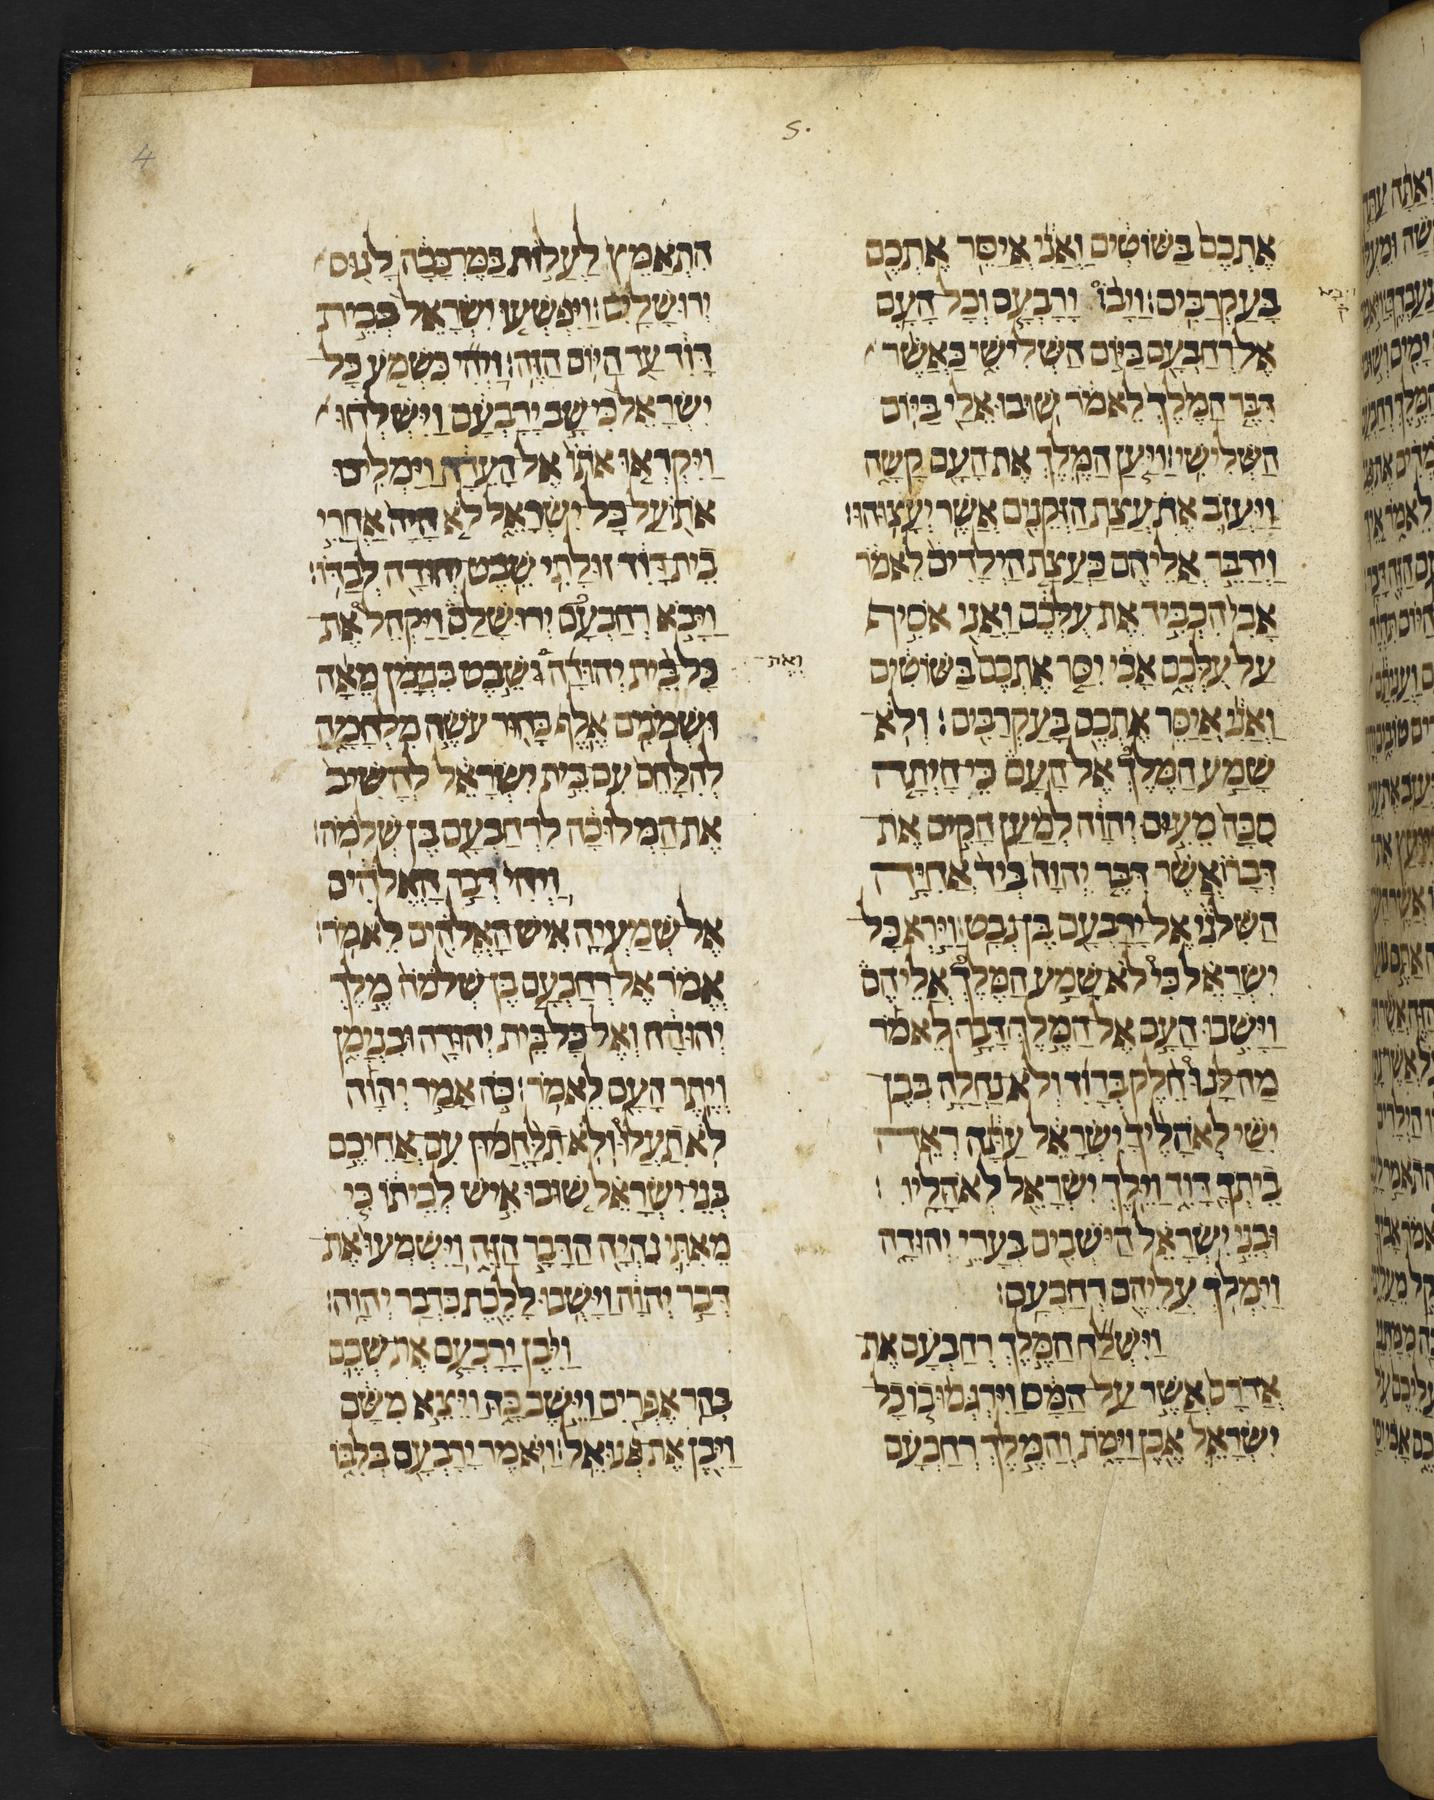 אֶתְכֶם בַּשּׁוֹטִים וַאֲנִי אֲיַסֵּר אֶתְכֶם
בָּעַקְרַבִּים׃ וַיָּבוֹ יָרָבְעָם וְכָל הָעָם
אֶל רְחַבְעָם בַּיּוֹם הַשְּׁלִישִׁי כַּאֲשֶׁר
דִּבֶּר הַמֶּלֶךְ לֵאמֹר שׁוּבוּ אֵלַי בַּיּוֹם
הַשְּׁלִישִׁי׃ וַיַּעַן הַמֶּלֶךְ אֶת הָעָם קָשָׁה
וַיַּעֲזֹב אֶת עֲצַת הַזְּקֵנִים אֲשֶׁר יְעָצוּהוּ׃
וַיְדַבֵּר אֲלֵיהֶם כַּעֲצַת הַיְלָדִים לֵאמֹר
אָבִי הִכְבִּיד אֶת עֻלְּכֶם וַאֲנִי אֹסִיף
עַל עֻלְּכֶם אָבִי יִסַּר אֶתְכֶם בַּשּׁוֹטִים
וַאֲנִי אֲיַסֵּר אֶתְכֶם בָּעַקְרַבִּים׃ וְלֹא
שָׁמַע הַמֶּלֶךְ אֶל הָעָם כִּי הָיְתָה
סִבָּה מֵעִם יְהוָה לְמַעַן הָקִים אֶת
דְּבָרוֹ אֲשֶׁר דִּבֶּר יְהוָה בְּיַד אֲחִיָּה
הַשִּׁלֹנִי אֶל יָרָבְעָם בֶּן נְבָט׃ וַיַּרְא כָּל
יִשְׂרָאֵל כִּי לֹא שָׁמַע הַמֶּלֶךְ אֲלֵיהֶם
וַיָּשִׁבוּ הָעָם אֶל הַמֶּלֶךְ דָּבָר לֵאמֹר
מַה לָּנוּ חֵלֶק בְּדָוִד וְלֹא נַחֲלָה בְּבֶן
יִשַׁי לְאֹהָלֶיךָ יִשְׂרָאֵל עַתָּה רְאֵה
בֵיתְךָ דָּוִד וַיֵּלֶךְ יִשְׂרָאֵל לְאֹהָלָיו׃
וּבְנֵי יִשְׂרָאֵל הַיֹּשְׁבִים בְּעָרֵי יְהוּדָה
וַיִּמְלֹךְ עֲלֵיהֶם רְחַבְעָם׃
וַיִּשְׁלַח הַמֶּלֶךְ רְחַבְעָם אֶת
אֲדֹרָם אֲשֶׁר עַל הַמַּס וַיִּרְגְּמוּ בוֹ כָּל
יִשְׂרָאֵל אֶבֶן וַיָּמֹת וְהַמֶּלֶךְ רְחַבְעָם
הִתְאַמֵּץ לַעֲלוֹת בַּמֶּרְכָּבָה לָנוּס
יְרוּשָׁלִָם׃ וַיִּפְשְׁעוּ יִשְׂרָאֵל בְּבֵית
דָּוִד עַד הַיּוֹם הַזֶּה׃ וַיְהִי כִּשְׁמֹעַ כָּל
יִשְׂרָאֵל כִּי שָׁב יָרָבְעָם וַיִּשְׁלְחוּ
וַיִּקְרְאוּ אֹתוֹ אֶל הָעֵדָה וַיַּמְלִיכוּ
אֹתוֹ עַל כָּל יִשְׂרָאֵל לֹא הָיָה אַחֲרֵי
בֵית דָּוִד זוּלָתִי שֵׁבֶט יְהוּדָה לְבַדּוֹ׃
וַיָּבֹא רְחַבְעָם יְרוּשָׁלִַם וַיַּקְהֵל אֶת
כָּל בֵּית יְהוּדָה וְשֵׁבֶט בִּנְיָמִן מֵאָה
וּשְׁמֹנִים אֶלֶף בָּחוּר עֹשֵׂה מִלְחָמָה
לְהִלָּחֵם עִם בֵּית יִשְׂרָאֵל לְהָשִׁיב
אֶת הַמְּלוּכָה לִרְחַבְעָם בֶּן שְׁלֹמֹה׃
וַיְהִי דְּבַר הָאֱלֹהִים
אֶל שְׁמַעְיָה אִישׁ הָאֱלֹהִים לֵאמֹר׃
אֱמֹר אֶל רְחַבְעָם בֶּן שְׁלֹמֹה מֶלֶךְ
יְהוּדָה וְאֶל כָּל בֵּית יְהוּדָה וּבִנְיָמִן
וְיֶתֶר הָעָם לֵאמֹר׃ כֹּה אָמַר יְהוָה
לֹא תַעֲלוּ וְלֹא תִלָּחֲמוּן עִם אֲחֵיכֶם
בְּנֵי יִשְׂרָאֵל שׁוּבוּ אִישׁ לְבֵיתוֹ כִּי
מֵאִתִּי נִהְיָה הַדָּבָר הַזֶּה וַיִּשְׁמְעוּ אֶת
דְּבַר יְהוָה וַיָּשֻׁבוּ לָלֶכֶת כִּדְבַר יְהוָה׃
וַיִּבֶן יָרָבְעָם אֶת שְׁכֶם
בְּהַר אֶפְרַיִם וַיֵּשֶׁב בָּהּ וַיֵּצֵא מִשָּׁם
וַיִּבֶן אֶת פְּנוּאֵל׃ וַיֹּאמֶר יָרָבְעָם בְּלִבּוֹ
וְאֶת
4